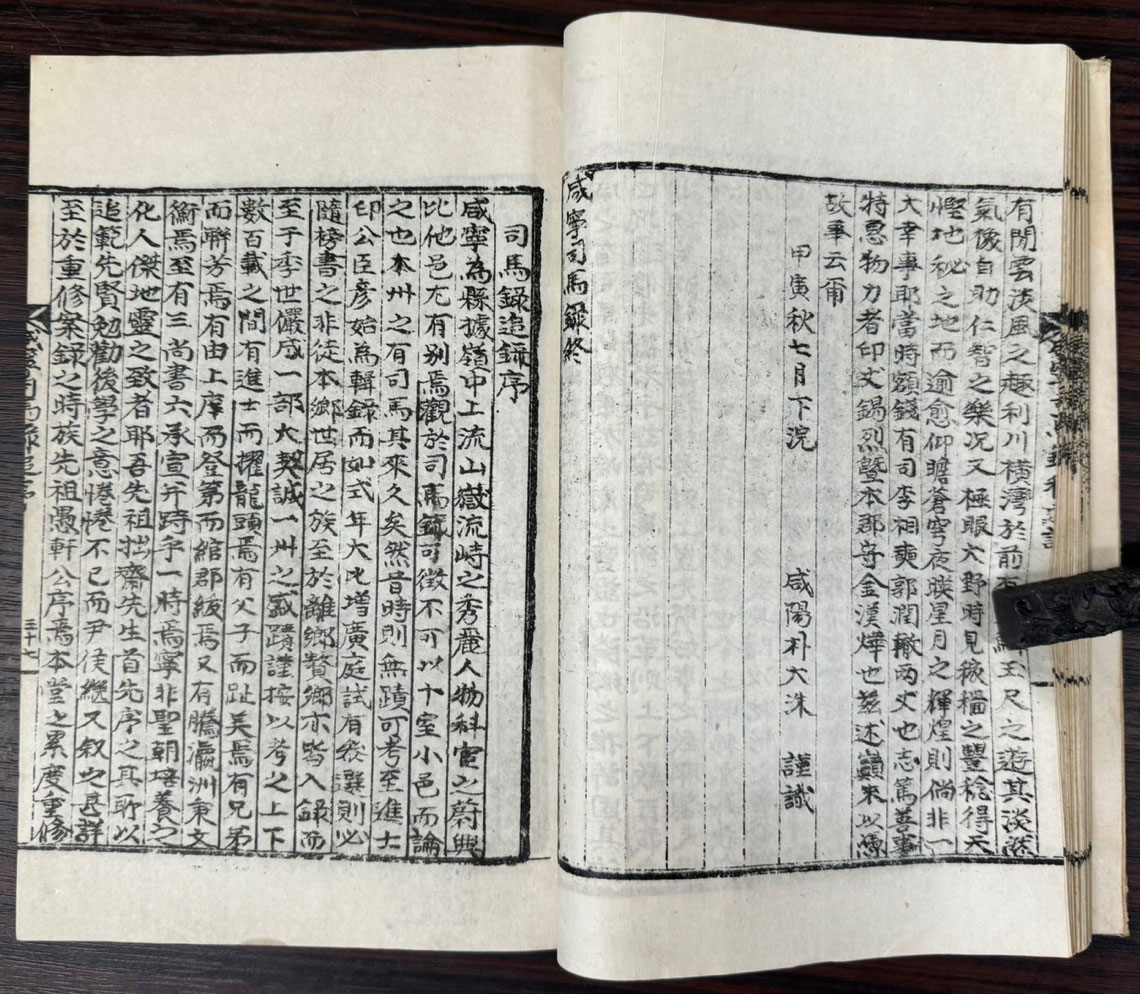 有閒雲淡風之趣利川橫灣於前
玉尺之遊其淡然
氣像自助仁智之樂况又極眼大野時見稼穡之豐稔得天
慳地秘之地而逾愈仰瞻蒼穹夜暎星月之輝煌則倘非一
大幸事耶當時額錢有司李相奭郭潤轍兩丈也志篤善事
特恩物力者印丈錫烈曁本郡守金漢燁也玆述顚末以爲
故事云爾
甲寅秋七月下浣 咸陽朴大洙 謹識
咸寧司馬錄終
司馬錄追錄序
咸寧為縣據嶺中上流山嶽流峙之秀麗人物科宦之蔚興
比他邑尤有别焉觀於司馬錄可徵不可以十室小邑而論
之也本州之有司馬其來久矣然昔時則無蹟可考至進士
印公臣彦始為輯錄而如式年大比增廣庭試有發選則必
隨榜書之非徒本鄉世居之族至於離鄉贅鄉亦皆入錄而
至于季世儼成一部大契誠一州之盛蹟謹按以考之上下
數百載之間有進士而擢龍頭焉有父子而趾美焉有兄弟
而聨芳焉有由上庠而登第而綰郡紱焉又有騰瀛洲秉文
衡焉至有三尚書六承宣并時乎一時焉寧非聖朝培養之
化人傑地靈之致者耶吾先祖拙齋先生首先序之其所以
追範先賢勉勸後學之意惓惓不已而尹侯繼又叙之甚詳
至於重修案錄之時族先祖愚軒公序焉本堂之累度重修
咸寧司馬錄追序
三十七